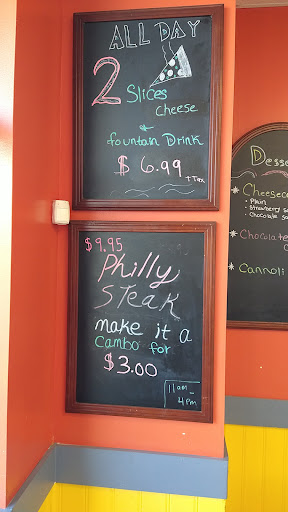 ALL DAY
2 Slices
cheese
&
fountain Drink
$6.99 +Tax
$9.95
Philly
STEAK
make it a
Cambo for
$3.00
11am -
4pm
Desse
* Cheesec
• Plain
• Strawberry s
• Chocolate Sa
* Chocolate
* Cannoli